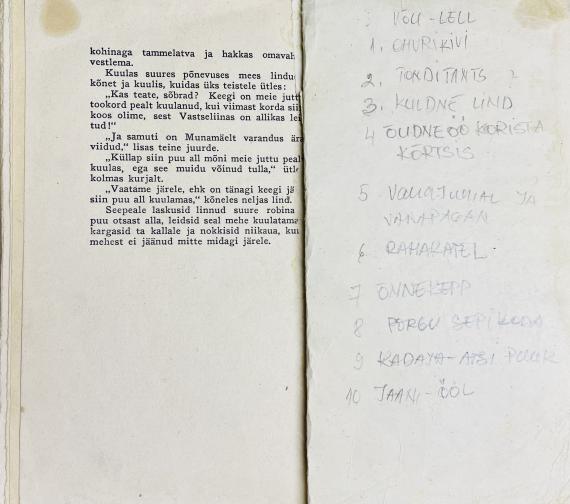 kohinaga tammelatva ja hakkas omavah
vestlema.
Kuulas suures põnevuses mees lindu
kõnet ja kuulis, kuidas üks teistele ütles:
„Kas teate, sõbrad? Keegi on meie jutt
tookord pealt kuulanud, kui viimast korda sii
koos olime, sest Vastseliinas on allikas lei
tud!“
„Ja samuti on Munamäelt varandus ära
viidud,“ lisas teine juurde.
„Küllap siin puu all mõni meie juttu peal
kuulas, ega see muidu võinud tulla,“ ütle
kolmas kurjalt.
„Vaatame järele, ehk on tänagi keegi jä
siin puu all kuulamas,“ kõneles neljas lind.
Seepeale laskusid linnud suure robina
puu otsast alla, leidsid seal mehe kuulatama
kargasid ta kallale ja nokkisid niikaua, kui
mehest ei jäänud mitte midagi järele.
VÕLU-LELL
1. OHVRIKIVI
2. TONDITANTS ?
3. KULDNE LIND
4 ÕUDNE ÖÖ KORISTA
KÕRTSIS
5 JA
VANAPAGAN
6 RAHAKATEL
7 ÕNNEKEPP
8 PÕRGU SEPIKODA
9 KADAJA-ATSI PUUK
10 JAANI-ÖÖL